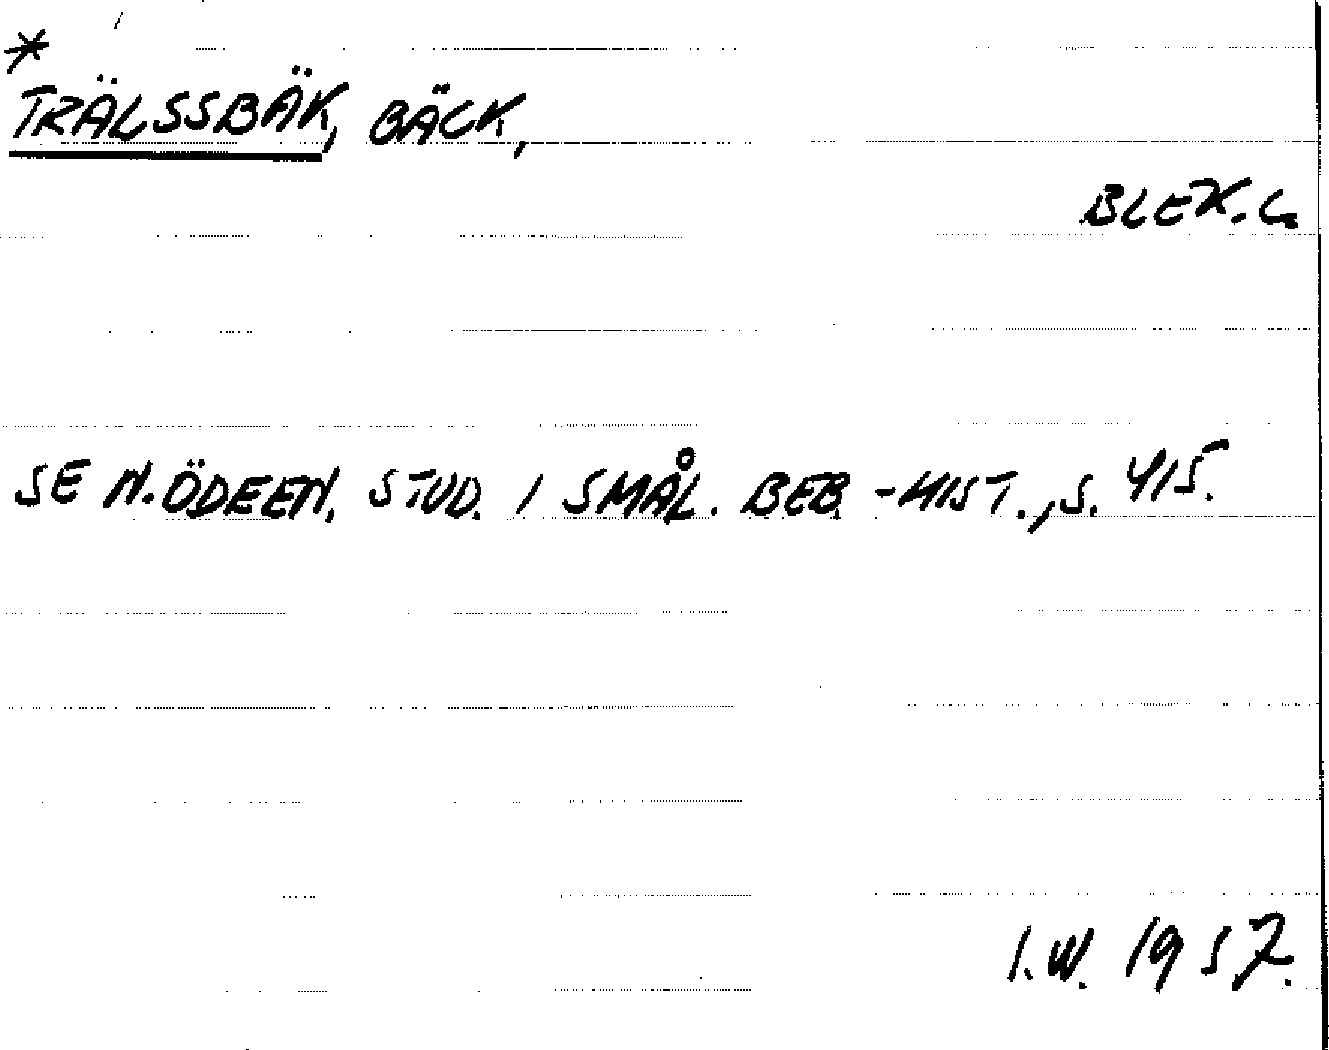 *
TRÄLSSBÄK, BÄCK,
BLEK. L.
SE N. ÖDEEN. STUD. I SMÅL. BEB.-HIST., S. 415.
I.W. 1957.